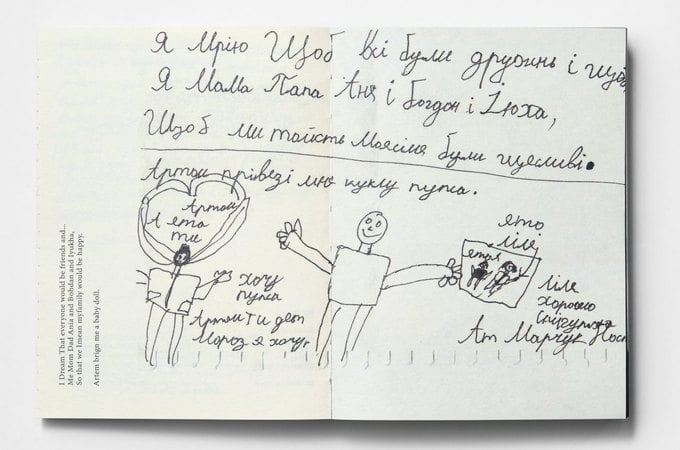 Я мрію Щоб всі були дружинь і щоб
Я Мама Папа Аня і Богдан і Іюха,
Щоб ми тоїсть Моясімя були щесливі.
Артом прівезі мнє куклу пупса.
Артом
А ета
ти
хочу
пупса
Артом ти дед
Мороз я хочу
ето
ліле
етая
ліле
хорошо
Ат Марчук
I Dream That everyone would be friends and...
Me Mom Dad Ania and Bohdan and Iyukha,
So that we Imean myfamily would be happy.
Artem brign me a baby doll.